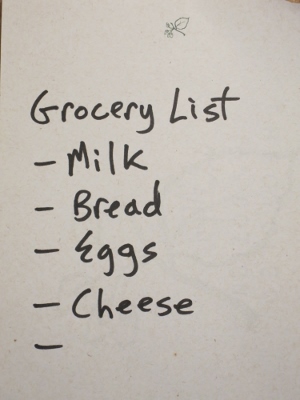 Grocery List
- Milk
- Bread
- Eggs
- Cheese
-